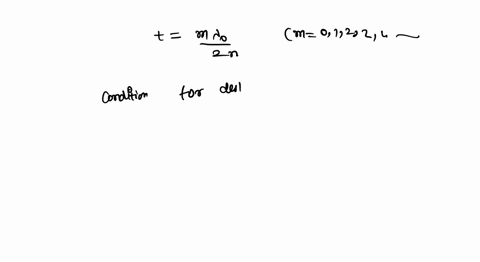 t = mλ₀/2n (m= 0,1,2,2,4 ~
Condition for des